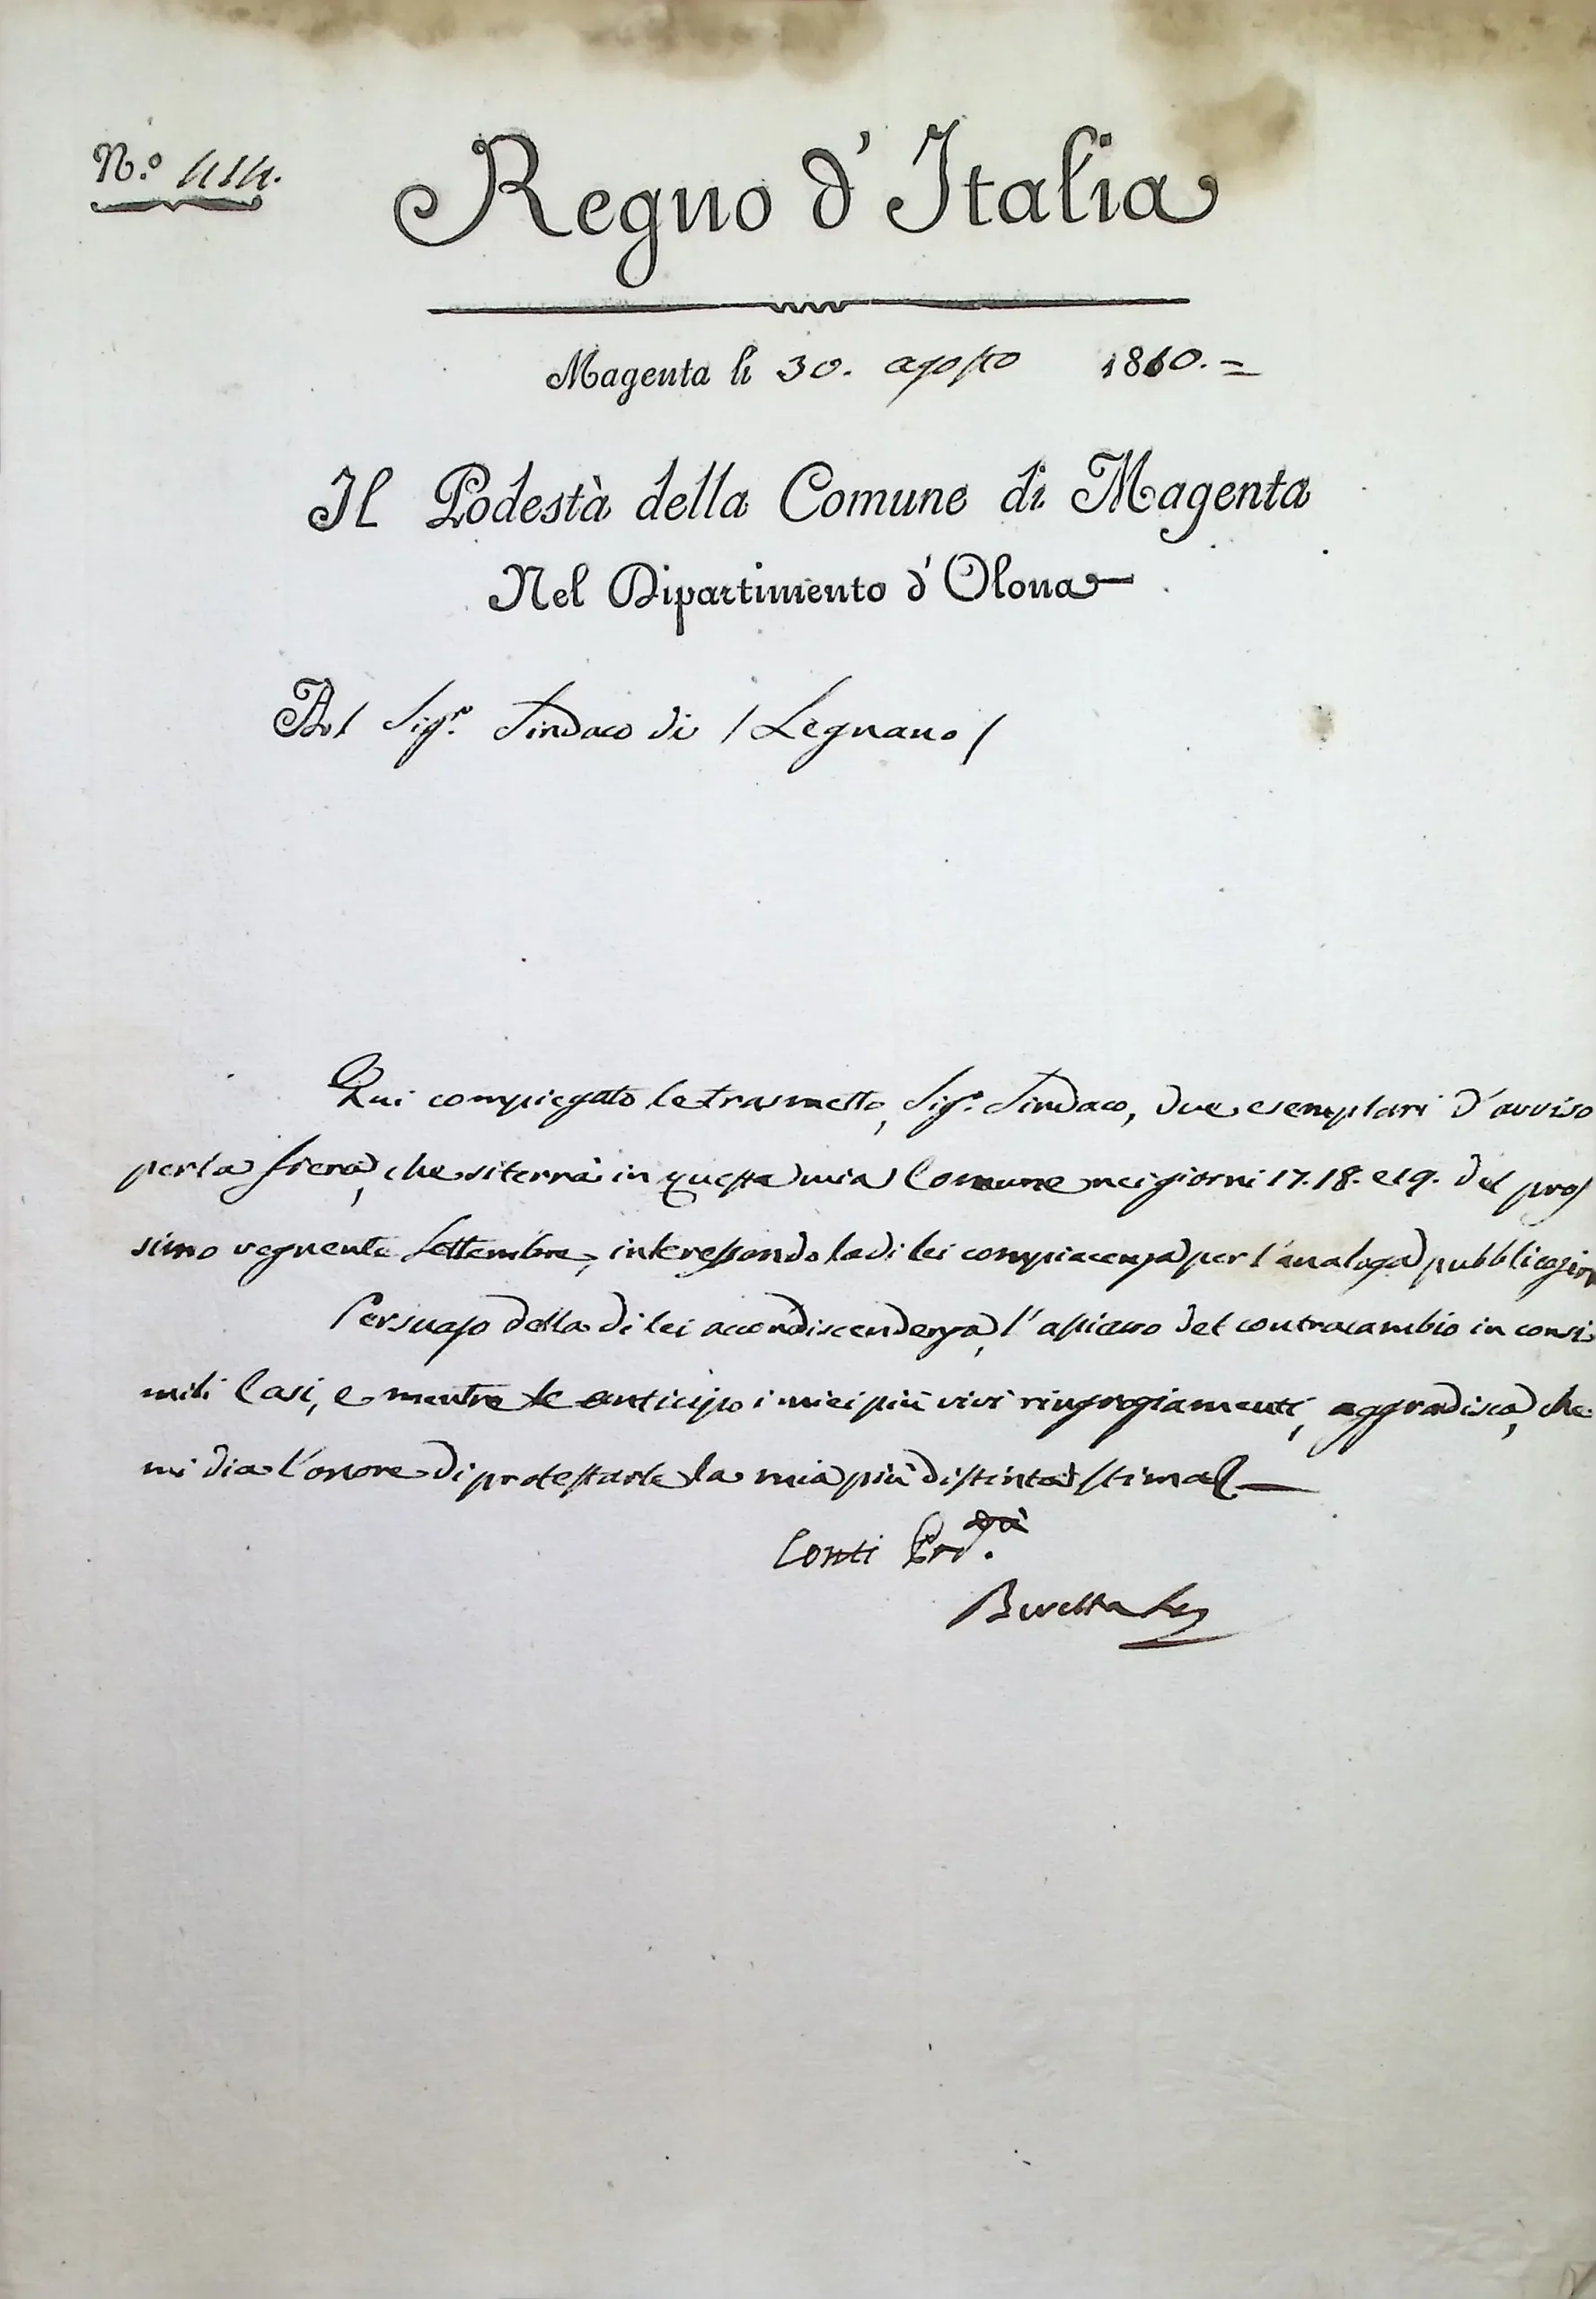 N.º 414.
Regno d'Italia
Magenta li 30. agosto 1810. =
Il Podestà della Comune di Magenta
Nel Dipartimento d'Olona
Al Sig.r Sindaco di / Legnano /
Qui compiegato le trasmetto, Sig.r Sindaco, due esemplari d'avviso
per la fiera, che si terrà in questa mia Comune nei giorni 17. 18. e 19. del pros
simo vegnente Settembre, interessando la di lei compiacenza per l'analoga pubblicazion
Persuaso della di lei accondiscendenza, l'assicuro del contracambio in consi
mili Casi, e mentre le anticipo i miei più vivi ringraziamenti, aggradisca, che
mi dia l'onore di protestarle la mia più distinta stima
Conti Pod.tà
Beretta